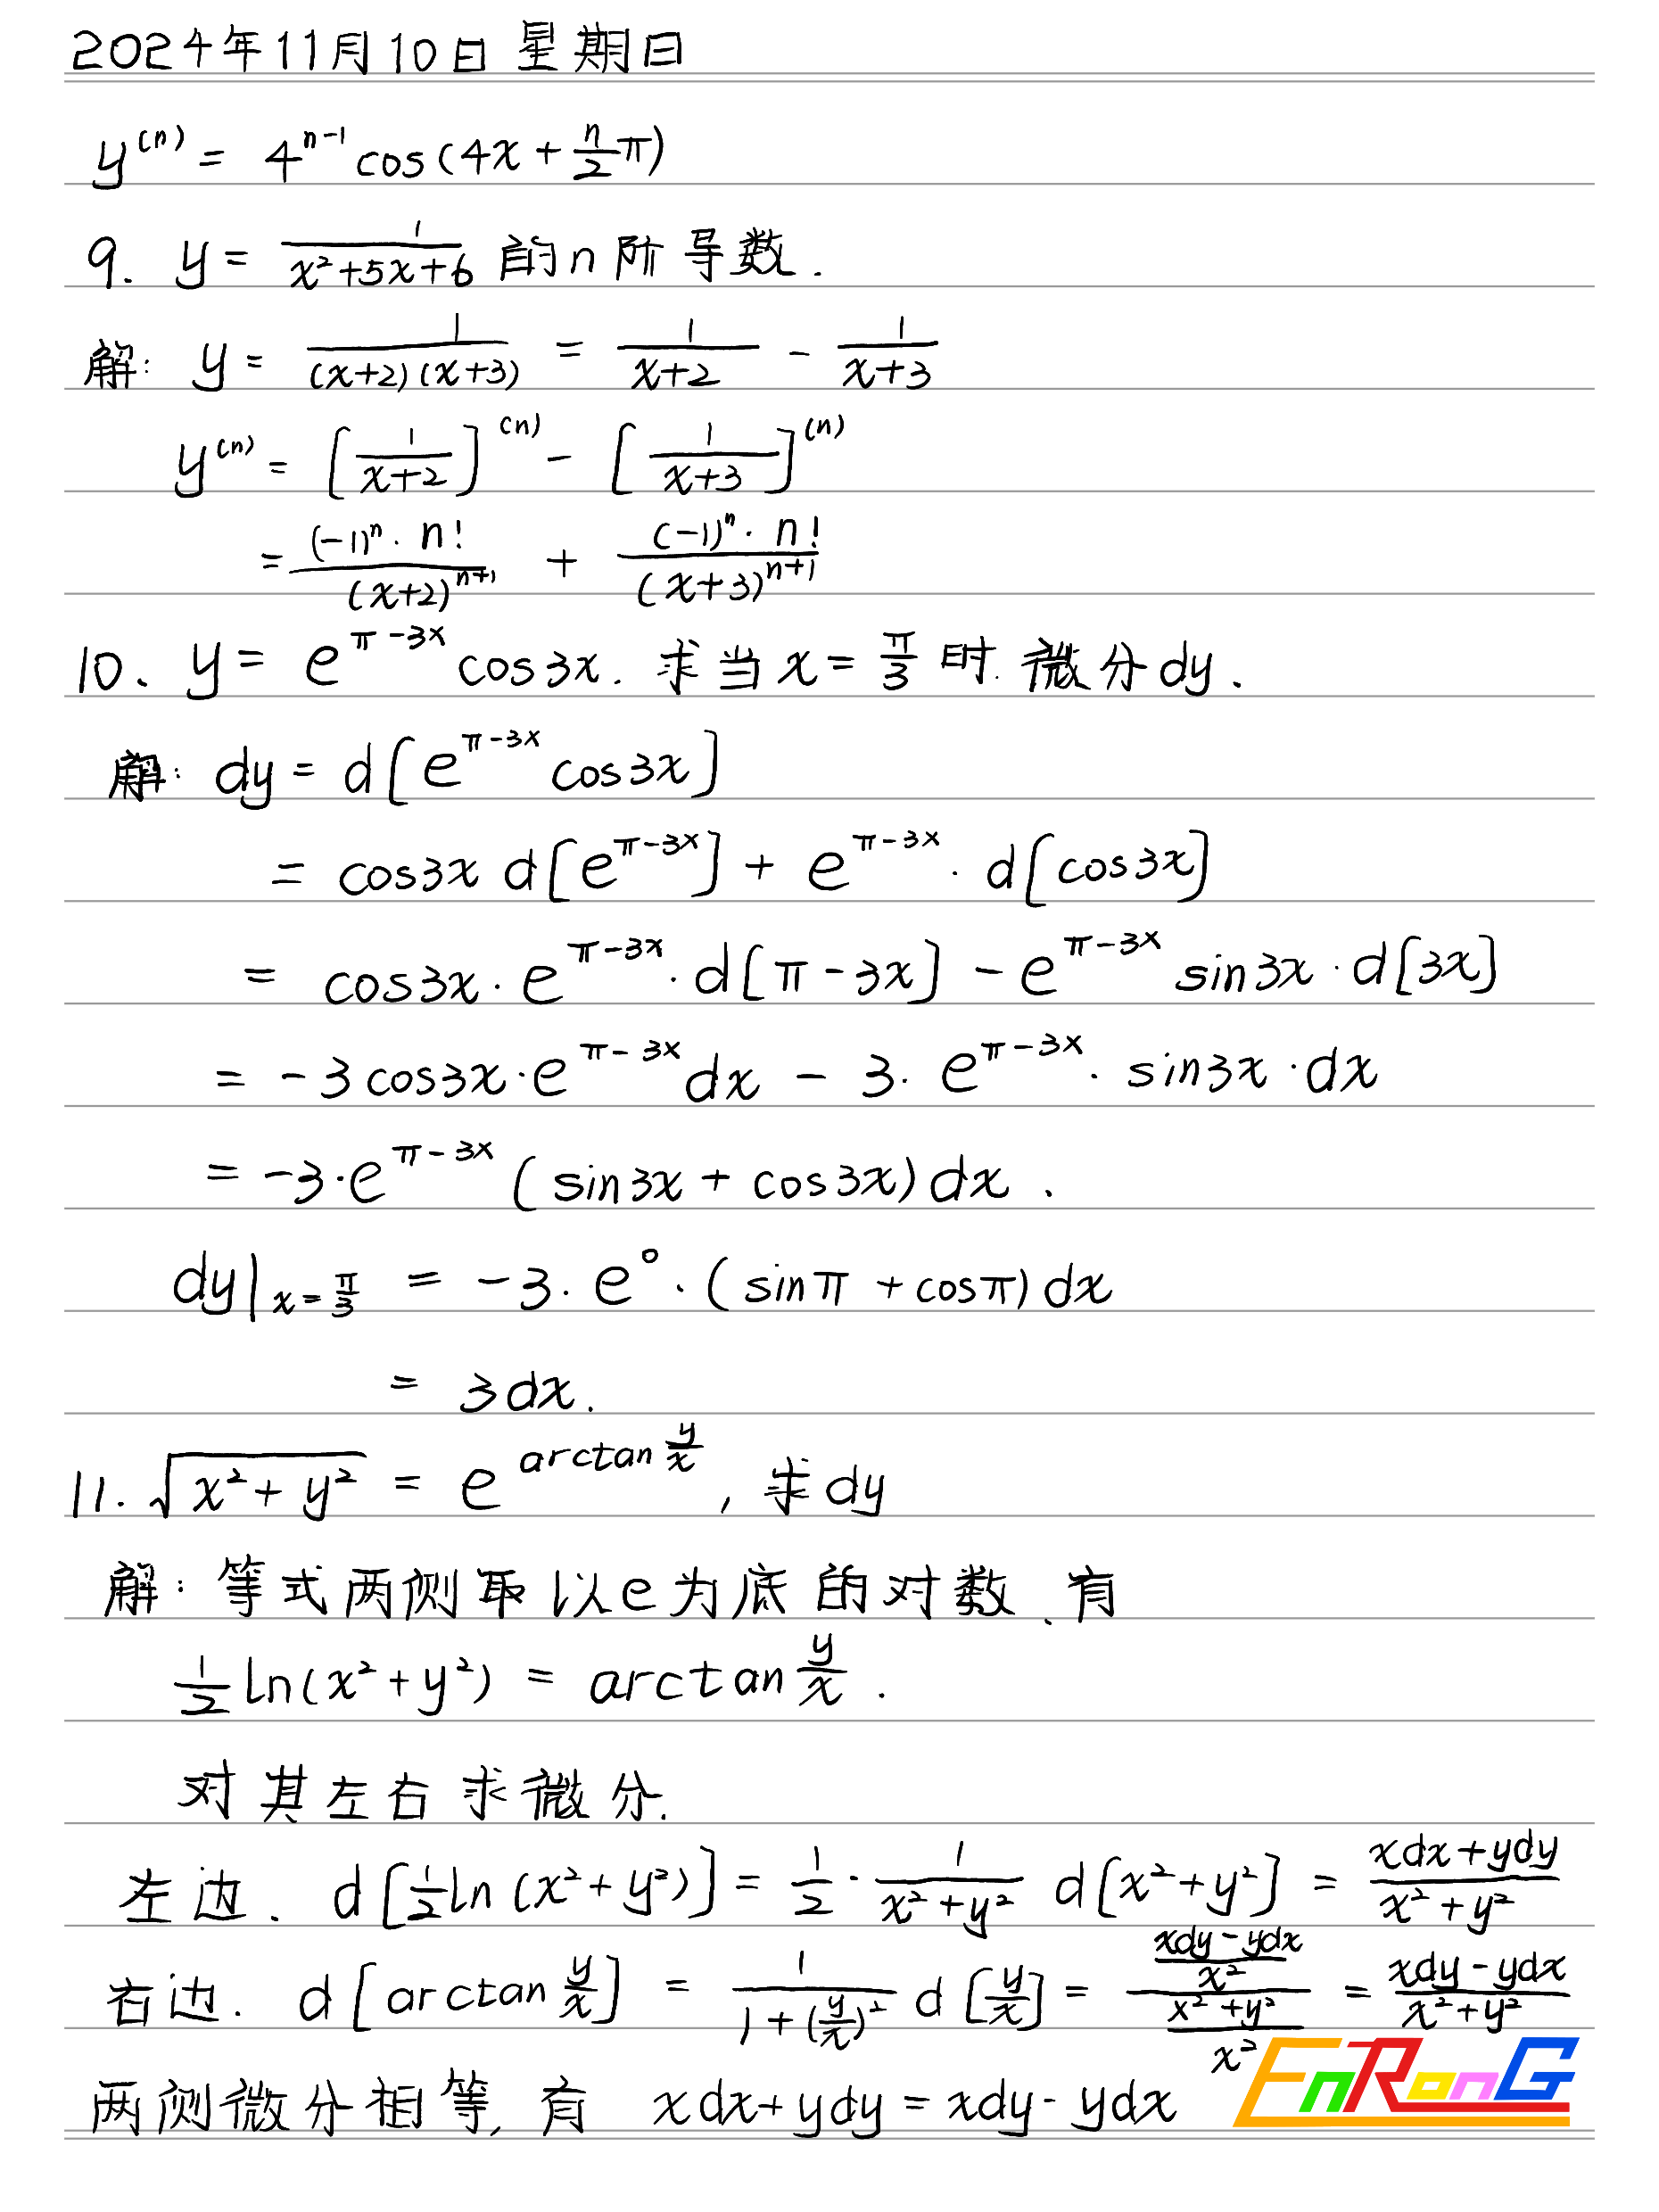 2024年11月10日 星期日
y^{(n)} = 4^{n-1} cos(4x + \frac{n}{2}π)
9. y = \frac{1}{x^2+5x+6} 的n阶导数.
解: y = \frac{1}{(x+2)(x+3)} = \frac{1}{x+2} - \frac{1}{x+3}
y^{(n)} = [\frac{1}{x+2}]^{(n)} - [\frac{1}{x+3}]^{(n)}
= \frac{(-1)^n · n!}{(x+2)^{n+1}} + \frac{(-1)^n · n!}{(x+3)^{n+1}}
10、y = e^{π-3x} cos3x. 求当 x = \frac{π}{3} 时. 微分dy.
解: dy = d[e^{π-3x} cos3x]
= cos3x d[e^{π-3x}] + e^{π-3x} · d[cos3x]
= cos3x · e^{π-3x} · d[π-3x] - e^{π-3x} sin3x · d[3x]
= -3cos3x · e^{π-3x} dx - 3 · e^{π-3x} · sin3x · dx
= -3 · e^{π-3x} (sin3x + cos3x) dx .
dy|_{x=\frac{π}{3}} = -3 · e^0 · (sinπ + cosπ) dx
= 3dx.
11. \sqrt{x^2+y^2} = e^{arctan\frac{y}{x}}, 求dy
解: 等式两侧取以e为底的对数、有
\frac{1}{2}ln(x^2+y^2) = arctan\frac{y}{x} .
对其左右求微分.
左边. d[\frac{1}{2}ln(x^2+y^2)] = \frac{1}{2} · \frac{1}{x^2+y^2} d[x^2+y^2] = \frac{xdx+ydy}{x^2+y^2}
右边. d[arctan\frac{y}{x}] = \frac{1}{1+(\frac{y}{x})^2} d[\frac{y}{x}] = \frac{\frac{xdy-ydx}{x^2}}{\frac{x^2+y^2}{x^2}} = \frac{xdy-ydx}{x^2+y^2}
两侧微分相等, 有 xdx+ydy = xdy-ydx
EnRonG